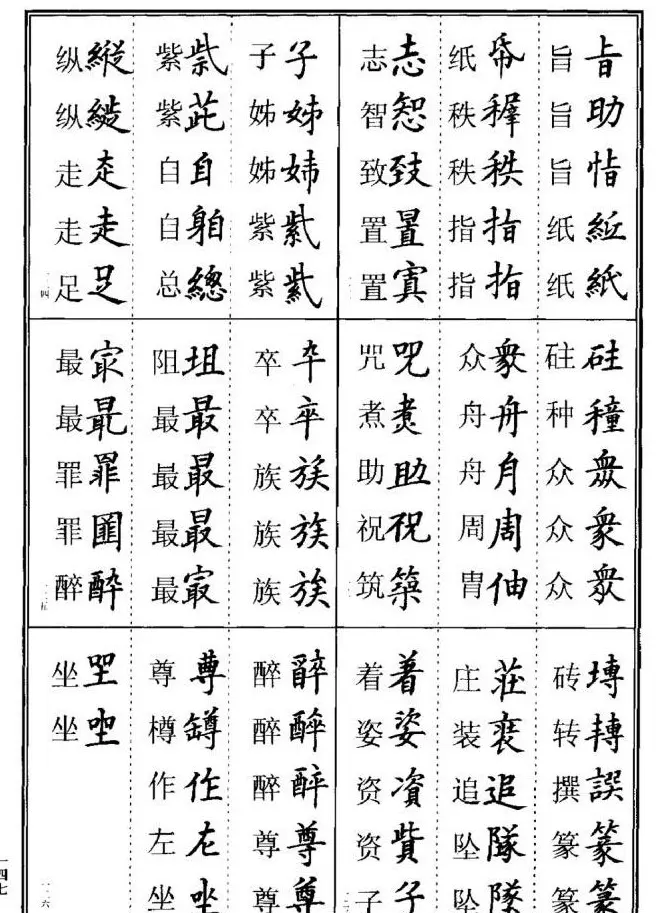 旨 旨 旨 助 旨 恉 纸 紙 纸 紙
纸 帋 秩 秩 秩 指 指 指 指
志 志 智 致 致 置 置 置 寘
子 子 姊 姊 姊 姊 紫 紫 紫 紫
紫 紫 紫 茈 自 自 自 总 總
纵 縱 纵 縱 走 走 走 走 足 足
砫 砫 种 穜 众 衆 众 衆 众 衆
众 衆 舟 舟 舟 月 周 周 胄 伷
咒 咒 煮 煑 助 助 祝 祝 筑 築
卒 卆 卒 卒 族 族 族 族 族 族
阻 坥 最 最 最 最 最 最 最 㝡
最 㝡 最 最 罪 罪 罪 醉 醉
砖 塼 转 轉 撰 譔 篆 篆 篆 篆
庄 莊 装 裝 追 追 坠 隊 坠 隊
着 着 姿 姿 资 資 资 貲 子 子
醉 醉 醉 醉 醉 醉 尊 尊 尊 尊
尊 尊 樽 罇 作 作 左 左 坐 坐
坐 坐 坐 坐
一四七